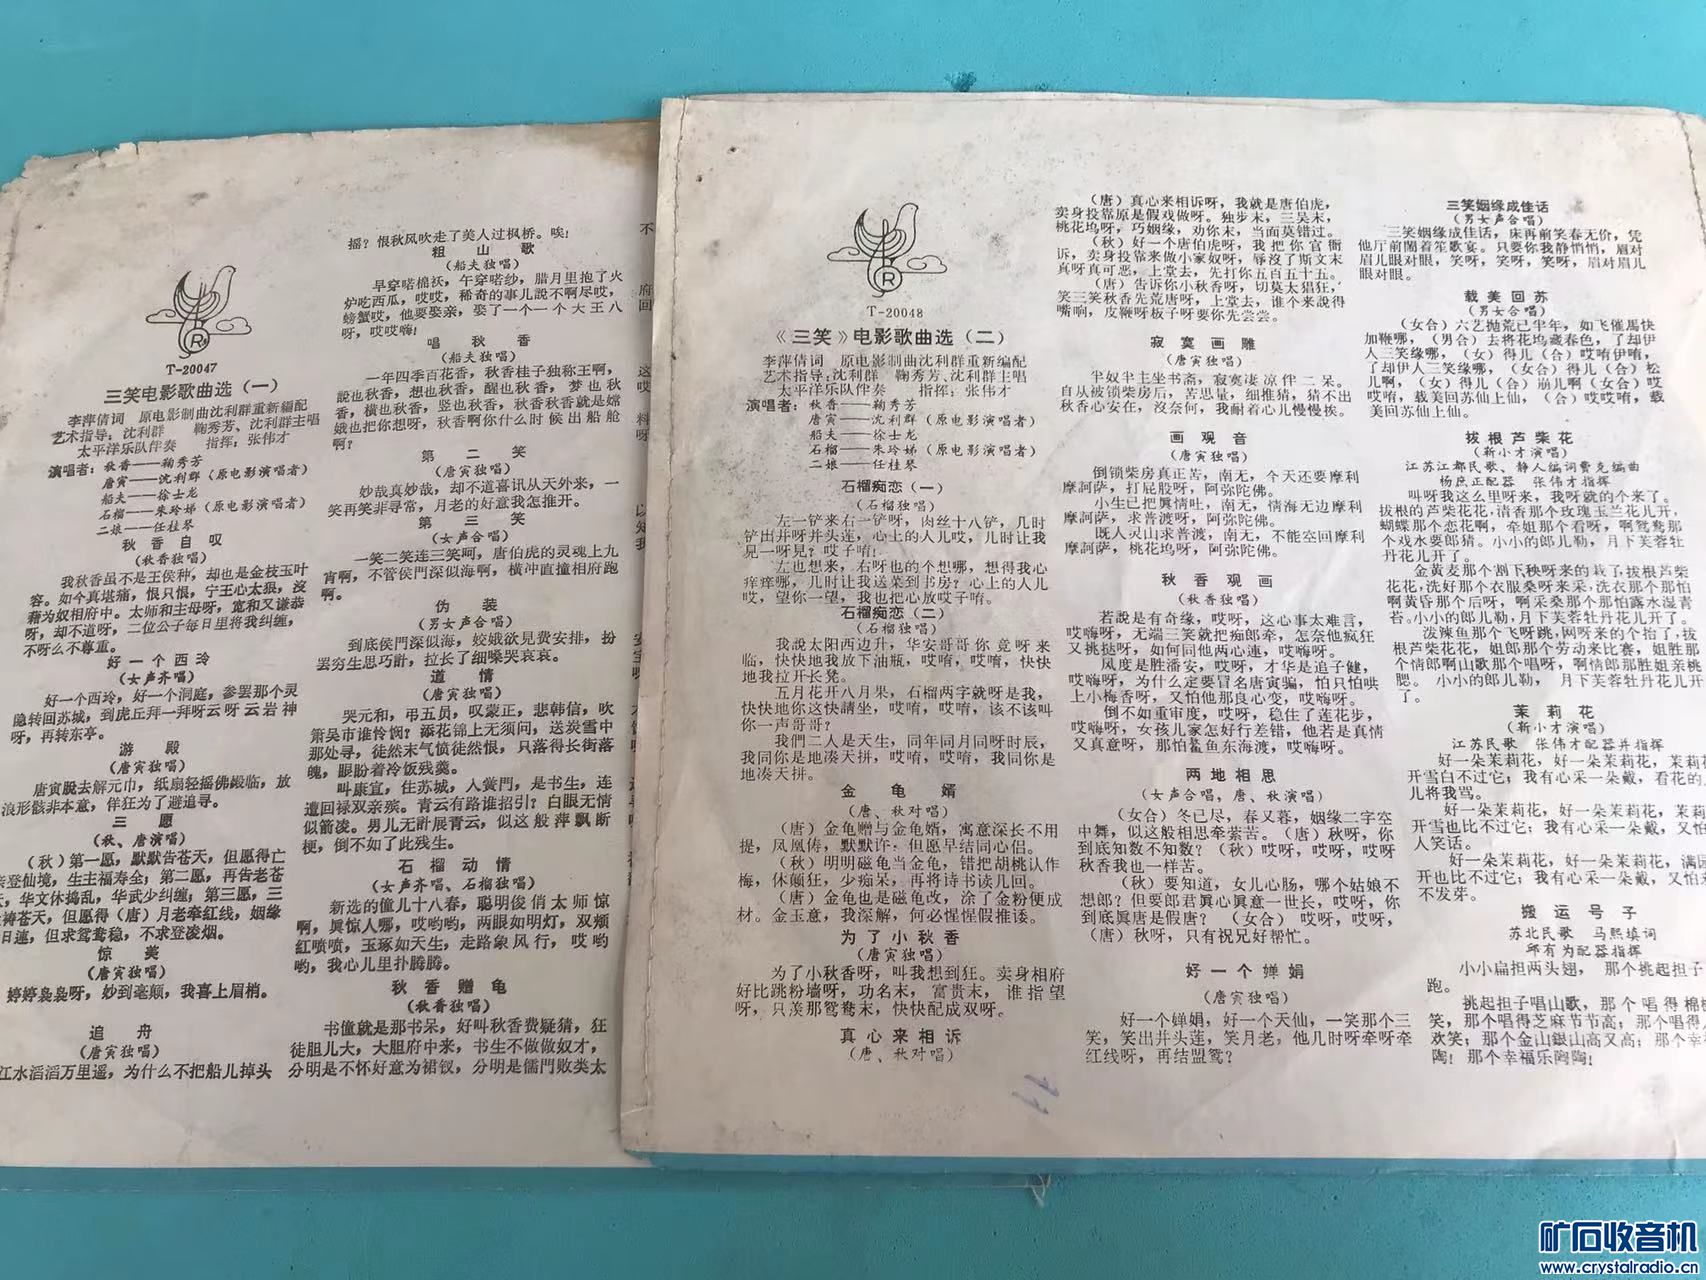 T-20047
三笑电影歌曲选（一）
李萍倩词　原电影制曲沈利群重新编配
艺术指导：沈利群　鞠秀芳、沈利群主唱
太平洋乐队伴奏　指挥：张伟才
演唱者：秋香——鞠秀芳
唐寅——沈利群（原电影演唱者）
船夫——徐士龙
石榴——朱玲娣（原电影演唱者）
二娘——任桂琴
秋香自叹
（秋香独唱）
我秋香虽不是王侯种，却也是金枝玉叶
容。如今真堪痛，恨只恨，宁王心太狠，沒
藉为奴相府中。太师和主母呀，宽和又谦恭
呀，却不道呀，二位公子每日里将我纠缠，
不呀么不尊重。
好一个西泠
（女声齐唱）
好一个西玲，好一个洞庭，参罢那个灵
隐转回苏城，到虎丘拜一拜呀云呀云岩神
呀，再转东亭。
游殿
（唐寅独唱）
唐寅脱去解元巾，纸扇轻摇佛殿临，放
浪形骸非本意，佯狂为了避追寻。
三愿
（秋、唐演唱）
（秋）第一愿，默默告苍天，但愿得亡
亲登仙境，生主福寿全；第二愿，再告老苍
天，华文休捣乱，华武少纠缠；第三愿，三
祷苍天，但愿得（唐）月老牵红线，姻缘
日連，但求鸳鸯稳，不求登凌烟。
惊美
（唐寅独唱）
婷婷袅袅呀，妙到毫颠，我喜上眉梢。
追舟
（唐寅独唱）
江水滔滔万里遥，为什么不把船儿掉头
摇？恨秋风吹走了美人过枫桥。唉！
粗山歌
（船夫独唱）
早穿喏棉袄，午穿喏纱，腊月里抱了火
炉吃西瓜，哎哎，稀奇的事儿説不啊尽哎，
螃蟹哎，他要娶亲，娶了一个一个大王八
呀，哎哎嗨！
唱秋香
（船夫独唱）
一年四季百花香，秋香桂子独称王啊，
説也秋香，想也秋香，醒也秋香，梦也秋
香，横也秋香，竖也秋香，秋香秋香就是嫦
娥也把你想呀，秋香啊你什么时候出船舱
啊？
第二笑
（唐寅独唱）
妙哉真妙哉，却不道喜讯从天外来，一
笑再笑非寻常，月老的好意我怎推开。
第三笑
（女声合唱）
一笑二笑连三笑呵，唐伯虎的灵魂上九
宵啊，不管侯门深似海啊，横冲直撞相府跑
啊。
伪装
（男女声合唱）
到底侯門深似海，姣娥欲見费安排，扮
罢穷生思巧計，拉长了细嗓哭哀哀。
道情
（唐寅独唱）
哭元和，弔五员，叹蒙正，悲韩信，吹
箫吴市谁怜悯？添花锦上无须问，送炭雪中
那处寻，徒然末气愤徒然恨，只落得长街落
魄，眼盼着冷饭残羹。
叫康宜，住苏城，人黉門，是书生，连
遭回禄双亲殡。青云有路谁招引？白眼无情
似箭凌。男儿无計展青云，似这般萍飘断
梗，倒不如了此残生。
石榴动情
（女声齐唱、石榴独唱）
新选的僮儿十八春，聪明俊俏太师惊
啊，眞惊人哪，哎哟哟，两眼如明灯，双颊
红喷喷，玉琢如天生，走路象风行，哎哟
哟，我心儿里扑腾腾。
秋香赠龟
（秋香独唱）
书僮就是那书呆，好叫秋香费疑猜，狂
徒胆儿大，大胆府中来，书生不做做奴才，
分明是不怀好意为裙钗，分明是儒門败类太
T-20048
《三笑》电影歌曲选（二）
李萍倩词　原电影制曲沈利群重新编配
艺术指导：沈利群　鞠秀芳、沈利群主唱
太平洋乐队伴奏　指挥：张伟才
演唱者：秋香——鞠秀芳
唐寅——沈利群（原电影演唱者）
船夫——徐士龙
石榴——朱玲娣（原电影演唱者）
二娘——任桂琴
石榴痴恋（一）
（石榴独唱）
左一铲来右一铲呀，肉丝十八铲，几时
铲出井呀并头连，心上的人儿哎，几时让我
見一呀見？哎子唷！
左也想来，右呀也的个想哪，想得我心
痒痒哪，几时让我送菜到书房？心上的人儿
哎，望你一望，我也把心放哎子唷。
石榴痴恋（二）
（石榴独唱）
我説太阳西边升，华安哥哥你竟呀来
临，快快地我放下油瓶，哎唷，哎唷，快快
地我拉开长凳。
五月花开八月果，石榴两字就呀是我，
快快地你这快請坐，哎唷，哎唷，该不该叫
你一声哥哥？
我們二人是天生，同年同月同呀时辰，
我同你是地凑天拼，哎唷，哎唷，我同你是
地凑天拼。
金龟婿
（唐、秋对唱）
（唐）金龟赠与金龟婿，寓意深长不用
提，凤凰俦，默默许：但愿早结同心侣。
（秋）明明磁龟当金龟，错把胡桃认作
梅，休颠狂，少痴呆，再将诗书读几回。
（唐）金龟也是磁龟改，涂了金粉便成
材。金玉意，我深解，何必惺惺假推诿。
为了小秋香
（唐寅独唱）
为了小秋香呀，叫我想到狂。卖身相府
好比跳粉墙呀，功名末，富贵末，谁指望
呀，只羡那鸳鸯末，快快配成双呀。
真心来相诉
（唐、秋对唱）
（唐）真心来相诉呀，我就是唐伯虎，
卖身投靠原是假戏做呀。独步末，三吴末，
桃花坞呀，巧姻缘，劝你末，当面莫错过。
（秋）好一个唐伯虎呀，我把你官衙
诉，卖身投靠来做小家奴呀，辱没了斯文末
真呀真可恶，上堂去，先打你五百五十五。
（唐）告诉你小秋香呀，切莫太猖狂，
笑三笑秋香先荒唐呀，上堂去，谁个来説得
嘴响，皮鞭呀板子呀要你先尝尝。
寂寞画雕
（唐寅独唱）
半奴半主坐书斋，寂寞凄凉伴二呆。
自从被锁柴房后，苦思量，细推猜，猜不出
秋香心安在，沒奈何，我耐着心儿慢慢挨。
画观音
（唐寅独唱）
倒锁柴房真正苦，南无，今天还要摩利
摩訶萨，打屁股呀，阿弥陀佛。
小生已把真情吐，南无，情海无边摩利
摩訶萨，求普渡呀，阿弥陀佛。
既人灵山求普渡，南无，不能空回摩利
摩訶萨，桃花坞呀，阿弥陀佛。
秋香观画
（秋香独唱）
若說是有奇缘，哎呀，这心事太难言，
哎嗨呀，无端三笑就把痴郎牵，怎奈他疯狂
又挑挞呀，如何同他两心連，哎嗨呀。
风度是胜潘安，哎呀，才华是追子健，
哎嗨呀，为什么定要冒名唐寅骗，怕只怕哄
上小梅香呀，又怕他那良心变，哎嗨呀。
倒不如重审度，哎呀，稳住了莲花步，
哎嗨呀，女孩儿家怎好行差错，他若是真情
又真意呀，那怕鲨鱼东海渡，哎嗨呀。
两地相思
（女声合唱，唐、秋演唱）
（女合）冬已尽，春又暮，姻缘二字空
中舞，似这般相思牵萦苦。（唐）秋呀，你
到底知数不知数？（秋）哎呀，哎呀，哎呀，
秋香我也一样苦。
（秋）要知道，女儿心肠，哪个姑娘不
想郎？但要郎君真心真意一世长，哎呀，你
到底真唐是假唐？（女合）哎呀，哎呀，
（唐）秋呀，只有祝兄好帮忙。
好一个婵娟
（唐寅独唱）
好一个婵娟，好一个天仙，一笑那个三
笑，笑出井头连，笑月老，他几时呀牵呀牵
红线呀，再结盟鸳？
三笑姻缘成佳话
（男女声合唱）
三笑姻缘成佳话，床再前笑春无价，凭
他厅前閙着笙歌宴。只要你我静悄悄，眉对
眉儿眼对眼，笑呀，笑呀，笑呀，眉对眉儿
眼对眼。
载美回苏
（男女合唱）
（女合）六艺抛荒已半年，如飞催馬快
加鞭哪，（男合）去将花坞藏春色，了却伊
人三笑缘哪，（女）得儿（合）哎唷伊唷，
了却伊人三笑缘哪，（女合）得儿（合）松
儿啊，（女）得儿（合）崩儿啊（女合）哎
哎唷，载美回苏仙上仙，（合）哎哎唷，载
美回苏仙上仙。
拔根芦柴花
（靳小才演唱）
江苏江都民歌、静人编词费克编曲
杨庶正配器　张伟才指挥
叫呀我这么里呀来，我呀就的个来了。
拔根的芦柴花花，清香那个玫瑰玉兰花儿开，
蝴蝶那个恋花啊，牵姐那个看呀，啊鸳鸯那
个戏水要郎猜。小小的郎儿勒，月下芙蓉牡
丹花儿开了。
金黄麦那个割下秧呀来的栽了，拔根芦柴
花花，洗好那个衣服桑呀来采，洗衣那个那怕
啊黄昏那个后呀，啊采桑那个那怕露水湿青
苔。小小的郎儿勒，月下芙蓉牡丹花儿开了。
泼辣鱼那个飞呀跳，网呀来的个抬了，拔
根芦柴花花，姐郎那个劳动来比赛，姐胜那
个情郎啊山歌那个唱呀，啊情郎那胜姐亲桃
腮。小小的郎儿勒，月下芙蓉牡丹花儿开
了。
茉莉花
（靳小才演唱）
江苏民歌　张伟才配器并指挥
好一朵茉莉花，好一朵茉莉花，茉莉花
开雪白不过它；我有心采一朵戴，看花的
儿将我骂。
好一朵茉莉花，好一朵茉莉花，茉莉花
开雪也比不过它；我有心采一朵戴，又怕
人笑话。
好一朵茉莉花，好一朵茉莉花，满园
开也比不过它；我有心采一朵戴，又怕来
不发芽。
搬运号子
苏北民歌　马熙填词
邱有为配器指挥
小小扁担两头翘，那个挑起担子
跑。
挑起担子唱山歌，那个唱得棉桃
笑，那个唱得芝麻节节高；那个唱得
欢笑；那个金山銀山高又高；那个幸福
陶！那个幸福乐陶陶！
11
矿石收音机
www.crystalradio.cn